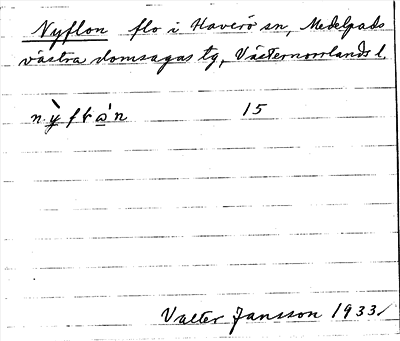 Nyflon flo i Haverö sn, Medelpads
västra domsagas tg, Västernorrlands l.
15
Valter Jansson 1933